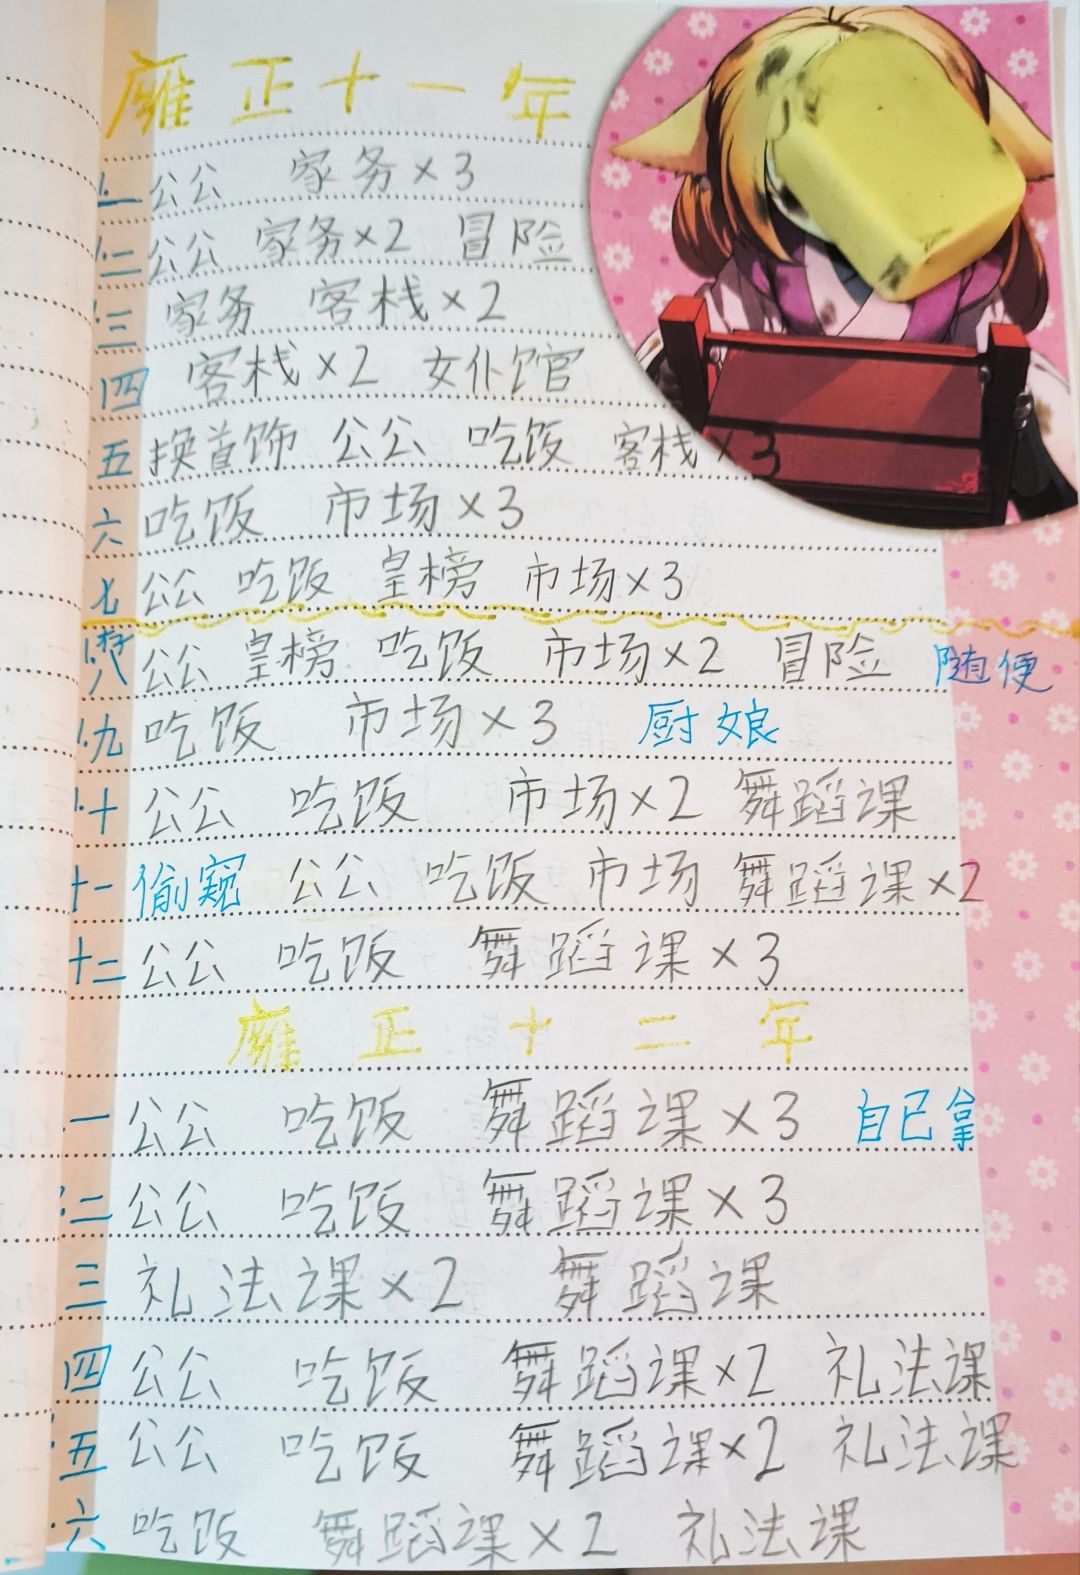 雍正十一年
一 公公 家务×3
二 公公 家务×2 冒险
三 家务 客栈×2
四 客栈×2 女仆馆
五 换首饰 公公 吃饭 客栈×3
六 吃饭 市场×3
七 公公 吃饭 皇榜 市场×3
八 公公 皇榜 吃饭 市场×2 冒险 随便
九 吃饭 市场×3 厨娘
十 公公 吃饭 市场×2 舞蹈课
十一 偷窥 公公 吃饭 市场 舞蹈课×2
十二 公公 吃饭 舞蹈课×3
雍正十二年
一 公公 吃饭 舞蹈课×3 自己拿
二 公公 吃饭 舞蹈课×3
三 礼法课×2 舞蹈课
四 公公 吃饭 舞蹈课×2 礼法课
五 公公 吃饭 舞蹈课×2 礼法课
六 吃饭 舞蹈课×2 礼法课